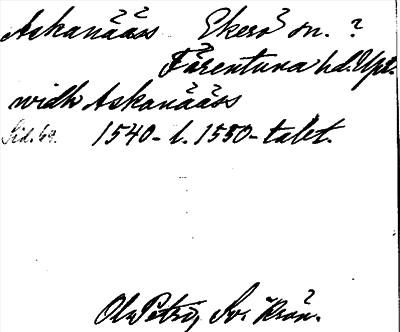 Askanääss Ekerö sn. ?
Färentuna hd. Upl.
widh Askanääss
Sid. 69. 1540- l. 1550-talet.
Ola Petri, Sv. Krön.